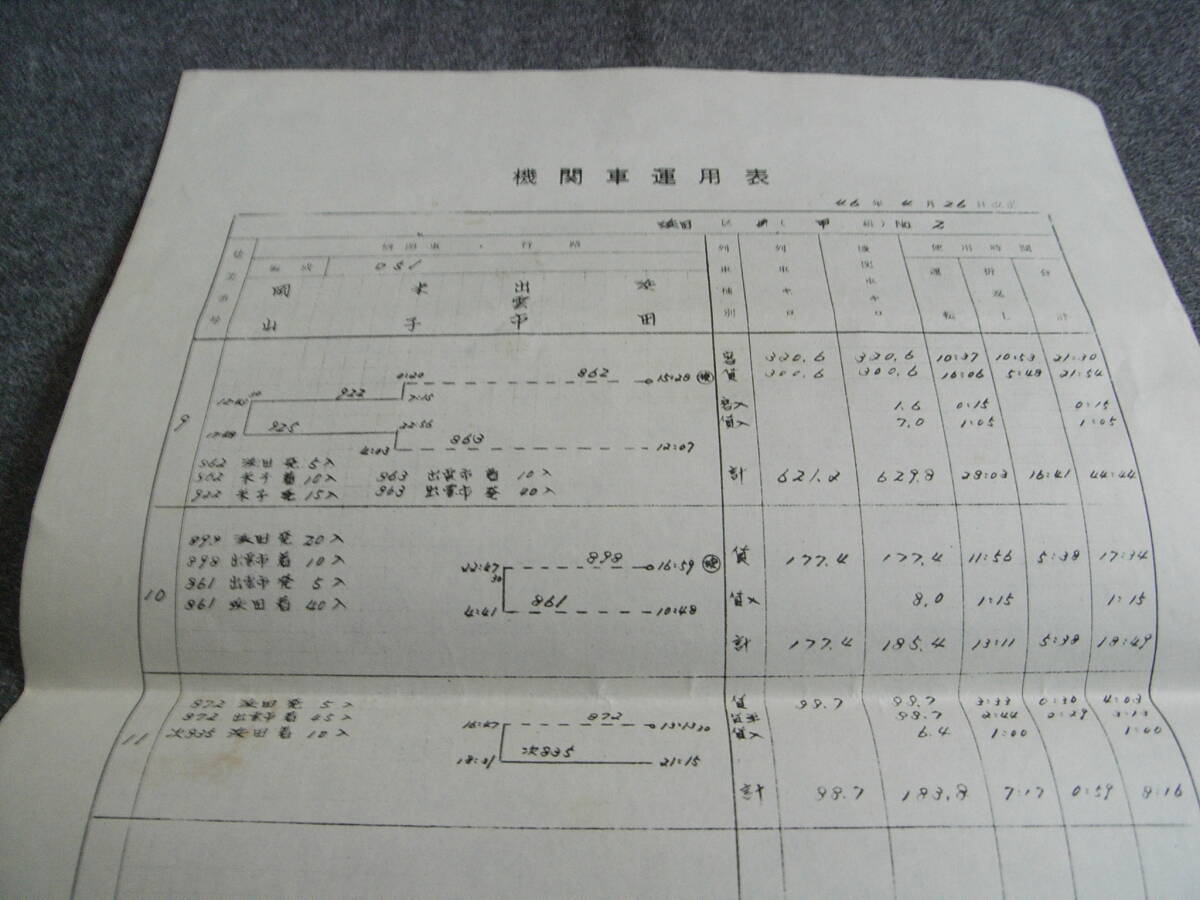 機関車運用表
46 年 4 月 26 日改正
浜田 区 ( 甲 組 ) No 2
機関車 行路
列車種別
列車キロ
機関車キロ
使用時間
形式 D51
運転
折返し
合計
岡山
米子
出雲市
浜田
9
客 320.6 320.6 10:37 10:53 21:30
貨 300.6 300.6 16:06 5:48 21:54
0:20 862 15:28
922 7:15
客入 1.6 0:15 0:15
貨入 7.0 1:05 1:05
925 22:56
4:03 863 12:07
862 浜田発 5入
862 米子着 10入 863 出雲市着 10入
922 米子発 15入 863 出雲市発 40入
計 621.2 629.8 28:03 16:41 44:44
10
898 浜田発 20入
898 出雲市着 10入
861 出雲市発 5入
861 浜田着 40入
22:47 898 16:59
30
4:41 861 10:48
貨 177.4 177.4 11:56 5:38 17:34
貨入 8.0 1:15 1:15
計 177.4 185.4 13:11 5:38 18:49
11
872 浜田発 5入
872 出雲市着 45入
次835 浜田着 10入
16:47 872 13:13 30
18:31 次835 21:15
貨 98.7 98.7 3:33 0:30 4:03
98.7 2:44 0:29 3:13
貨入 6.4 1:00 1:00
計 98.7 183.8 7:17 0:59 8:16